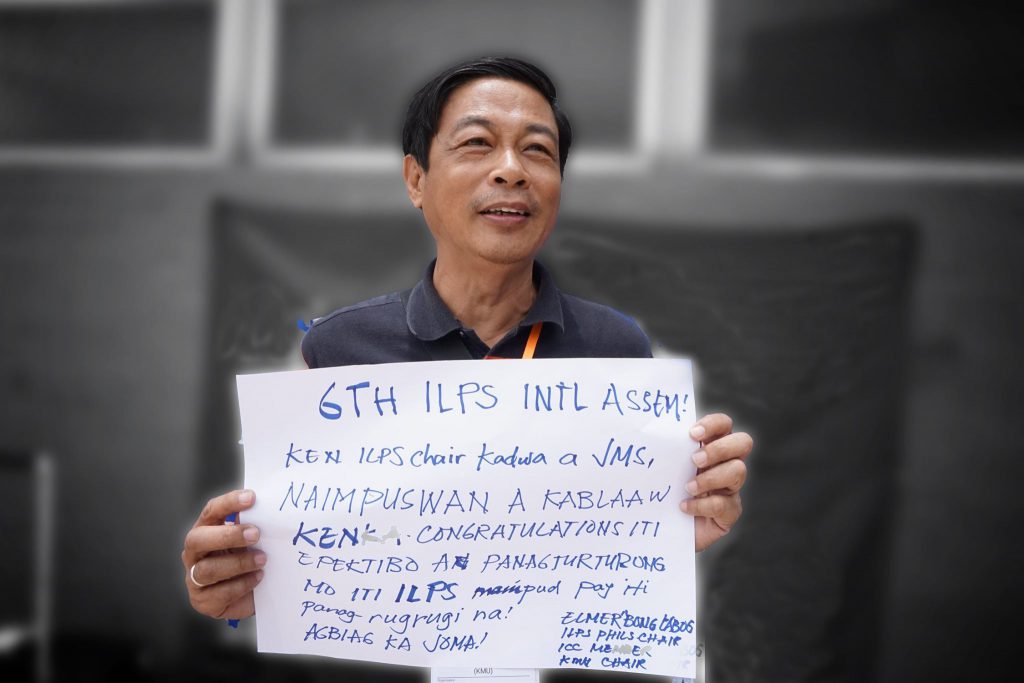 6TH ILPS INTL ASSEM!
KEN ILPS chair kadwa a JMS,
NAIMPUSWAN A KABLAAW
KENKA. CONGRATULATIONS ITI
EPEKTIBO A PANAGTURTURONG
MO ITI ILPS maipud pay iti
panag rugrugi na!
AGBIAG KA JOMA!
ELMER "BONG" LABOG
ILPS PHILS CHAIR
ICC MEMBER
KMU CHAIR
(KMU)